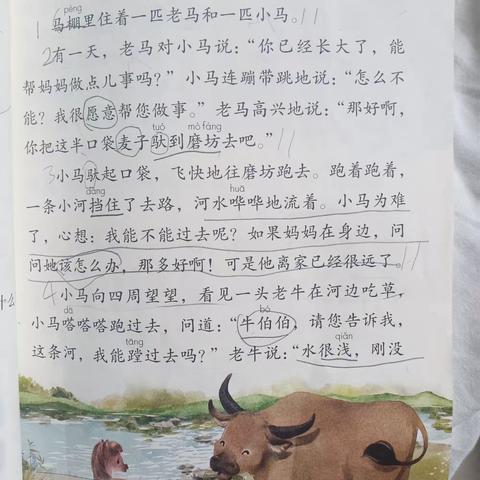 péng
1 马棚里住着一匹老马和一匹小马。
2有一天，老马对小马说：“你已经长大了，能
帮妈妈做点儿事吗？”小马连蹦带跳地说：“怎么不
能？我很愿意帮您做事。”老马高兴地说：“那好啊，
tuó mò fáng
你把这半口袋麦子驮到磨坊去吧。”
3小马驮起口袋，飞快地往磨坊跑去。跑着跑着，
dǎng huā
一条小河挡住了去路，河水哗哗地流着。小马为难
了，心想：我能不能过去呢？如果妈妈在身边，问
问她该怎么办，那多好啊！可是他离家已经很远了。
什么
4小马向四周望望，看见一头老牛在河边吃草，
dā bó
小马嗒嗒嗒跑过去，问道：“牛伯伯，请您告诉我，
tāng qiǎn
这条河，我能蹚过去吗？”老牛说：“水很浅，刚没